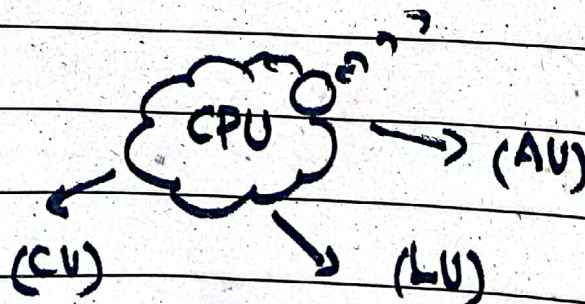 CPU
(AU)
(CU)
(LU)